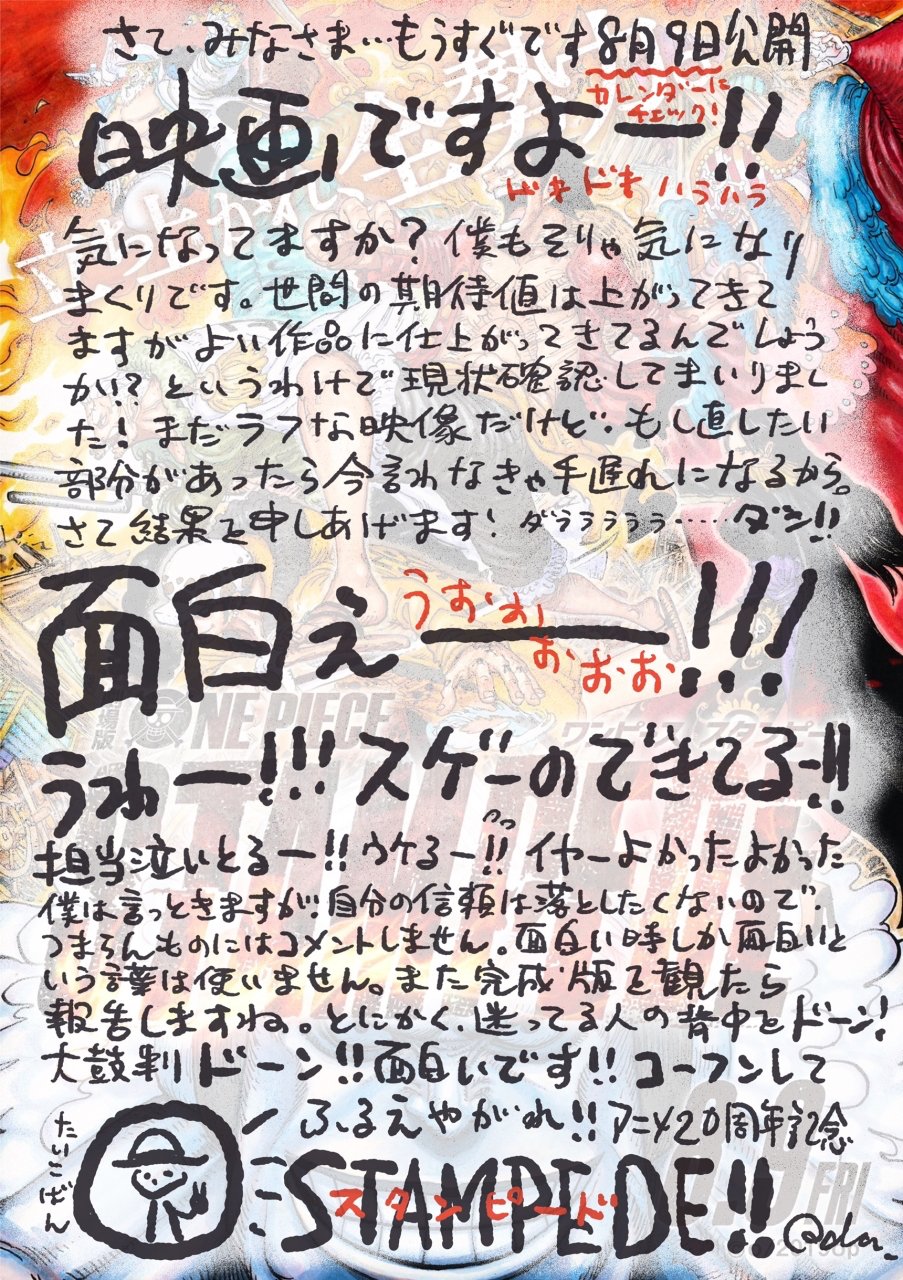 さて、みなさま…もうすぐです8月9日公開
カレンダーに
チェック!
映画ですよー!!
ドキドキ ハラハラ
気になってますか?僕もそりゃ気になり
まくりです。世間の期待値は上がってきて
ますがよい作品に仕上がってきてるんでしょう
か!?というわけで現状確認してまいりまし
た!まだラフな映像だけど、もし直したい
部分があったら今言わなきゃ手遅れになるから。
さて結果を申しあげます!ダララララララ……ダン!!
面白えー!!!
うおおおおお
劇場版 ONE PIECE
ワンピース スタンピード
うわー!!!スゲーのできてるー!!
担当泣いとるー!!ウケるー!!イヤーよかったよかった
僕は言っときますが、自分の信頼は落としたくないので、
つまらんものにはコメントしません。面白い時しか面白いと
いう言葉は使いません。また完成版を観たら
報告しますね。とにかく、迷ってる人の背中をドーン!
太鼓判ドーン!!面白いです!!コーフンして
ふるえやがれ!!アニメ20周年記念
たいこばん
STAMPEDE!!
スタンピード
8.9 FRI
Oda